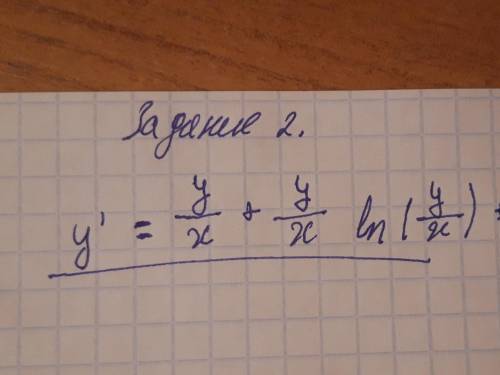 Задание 2.
y' = y/x + y/x ln(y/x)